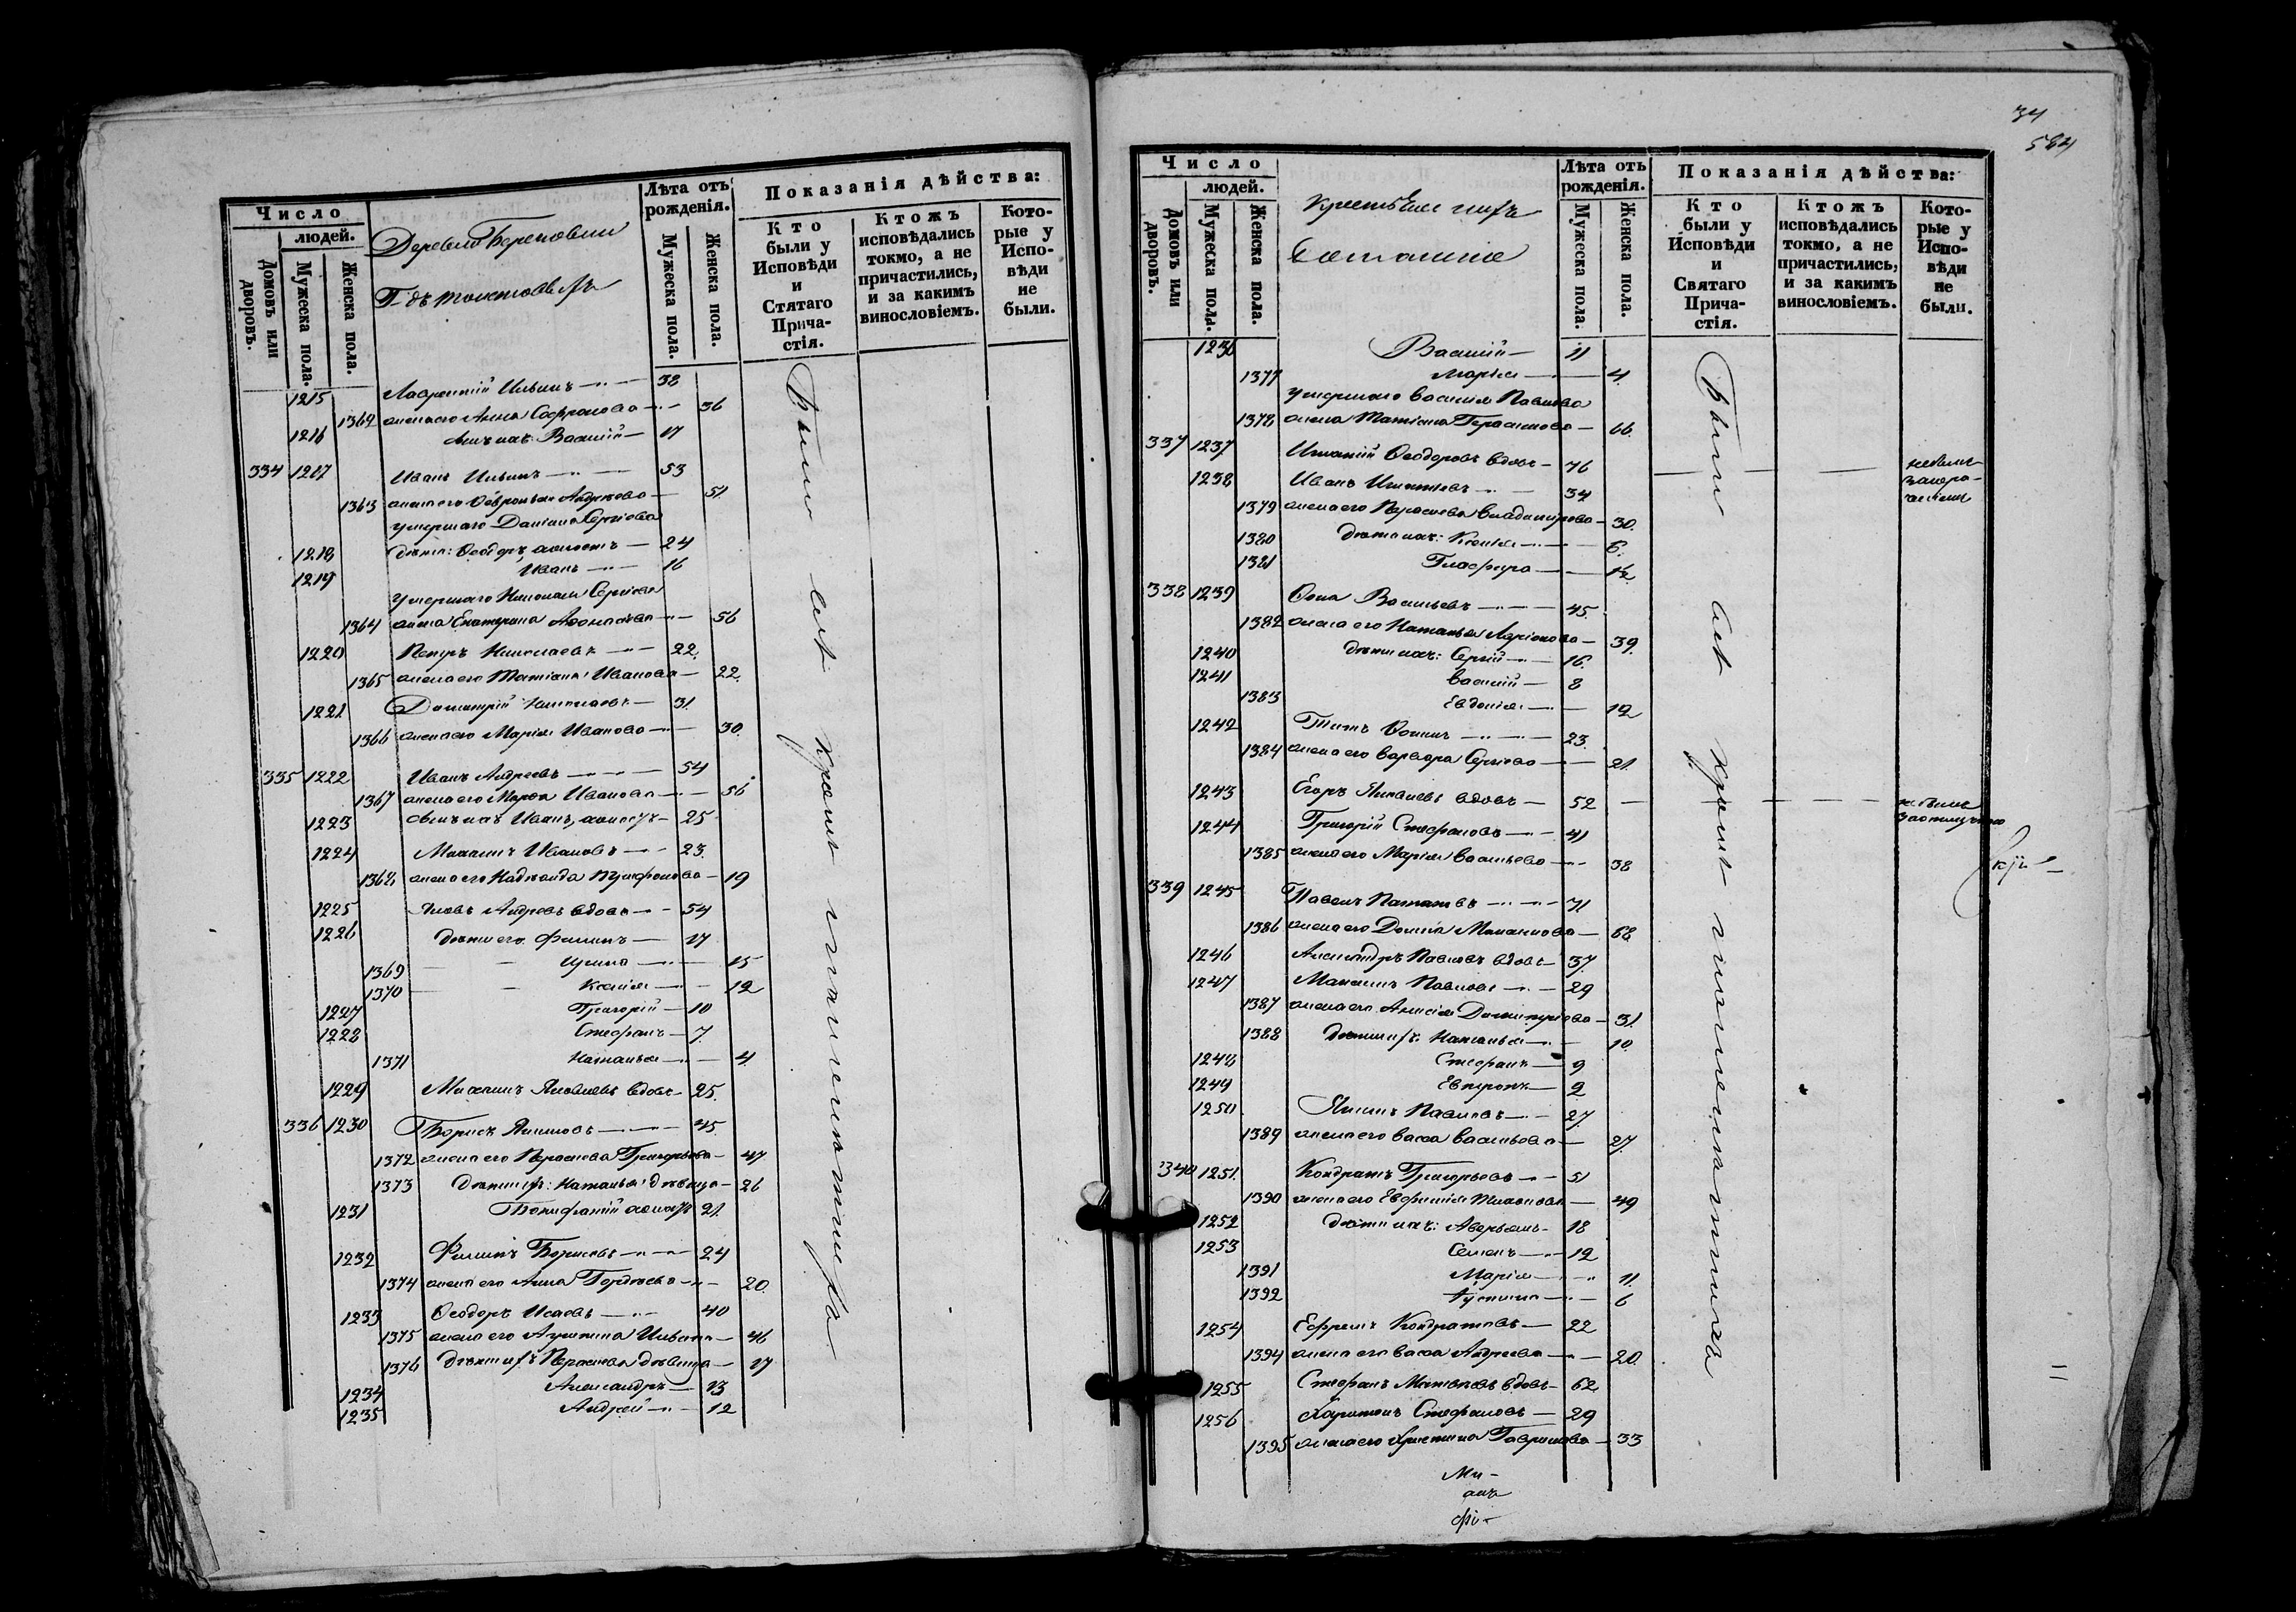 Число
людей.
Домовъ или дворовъ.
Мужеска пола.
Женска пола.
Деревни
Лѣта отъ рожденія.
Мужеска пола.
Женска пола.
Показанія дѣйства:
Кто были у Исповѣди и Стятаго Прича-стія.
Ктожъ исповѣдались токмо, а не причастились, и за какимъ винословіемъ.
Кото-рые у Испо-вѣди не были.
Были всѣ кромѣ
1215 Лаврентій Ильинъ — 38
1362 жена его Анна Софронова — 36
1216 сынъ ихъ Василій — 17
334 1217 Иванъ Ильинъ — 53
1363 жена его Февронья Андреева — 51
умершаго Даніила Сергіева
1218 дѣти: Ѳеодоръ, холостъ — 24
1219 Иванъ — 16
умершаго Николая Сергіева
1364 жена Екатерина Аѳонасьева — 56
1220 Петръ Николаевъ — 22
1365 жена его Татіана Иванова — 22
1221 Димитрій Николаевъ — 31
1366 жена его Марія Иванова — 30
335 1222 Иванъ Андреевъ — 54
1367 жена его Марѳа Иванова — 56
1223 сынъ ихъ Иванъ, холостъ — 25
1224 Михаилъ Ивановъ — 23
1368 жена его Надежда — 19
1225 Яковъ Андреевъ вдовъ — 54
1226 дѣти его Филипъ — 17
1369 Ирина — 15
1370 Ксенія — 12
1227 Григорій — 10
1228 Стефанъ — 7
1371 Наталья — 4
1229 Михаилъ Яковлевъ вдовъ — 25
336 1230 Борисъ Якимовъ — 45
1372 жена его Параскева Григорьева — 47
1373 дѣти ихъ: Наталья дѣвица — 26
1231 Бонифатій холостъ 21
1232 Филипъ Борисовъ — 24
1374 жена его Анна Гордѣева — 20
1233 Ѳеодоръ Исаевъ — 40
1375 жена его Акулина Ильина — 46
1376 дѣти ихъ Параскева дѣвица — 17
1234 Александръ — 13
1235 Андрей — 12
34
584
Число
людей.
Домовъ или дворовъ.
Мужеска пола.
Женска пола.
Крестьяне ихъ
Лѣта отъ рожденія.
Мужеска пола.
Женска пола.
Показанія дѣйства:
Кто были у Исповѣди и Святаго Прича-стія.
Ктожъ исповѣдались токмо, а не причастились, и за какимъ винословіемъ.
Кото-рые у Испо-вѣди не были.
Были всѣ кромѣ
1236 Василій — 11
1377 Марія — 4
умершаго Василія Павлова
1378 жена Татіана Герасимова — 66
337 1237 Игнатій Ѳеодоровъ вдовъ — 76
1238 Иванъ Игнатьевъ — 34
1379 жена его Параскева Владимірова — 30
1380 дѣти ихъ: Ксенія — 6
1381 Глафира — 1½
338 1239 Ѳома Васильевъ — 45
1382 жена его Наталья Ларіонова — 39
1240 дѣти ихъ: Сергій — 16
1241 Василій — 8
1383 Евдокія — 12
1242 Титъ Ѳоминъ — 23
1384 жена его Варвара Сергіева — 21
1243 Егоръ Яковлевъ вдовъ — 52
1244 Григорій Стефановъ — 41
1385 жена его Марія Васильева — 38
339 1245 Павелъ — 71
1386 жена его — 68
1246 Александръ Павловъ вдовъ — 37
1247 Михаилъ Павловъ — 29
1387 жена его Анисія Димитріева — 31
1388 дѣти ихъ Наталья — 10
1248 Стефанъ — 9
1249 Евтропъ — 2
1250 Якимъ Павловъ — 27
1389 жена его Васса Васильева — 27
340 1251 Кондратъ Григорьевъ — 51
1390 жена его Евфимія — 49
1252 дѣти ихъ: Аверьянъ — 18
1253 Семенъ — 12
1391 Марія — 11
1392 Іустина — 6
1254 Ефремъ Кондратовъ — 22
1394 жена его Васса Андреева — 20
1255 Стефанъ Матвѣевъ вдовъ — 62
1256 Харитонъ Стефановъ — 29
1395 жена его Христина Гаврилова — 33